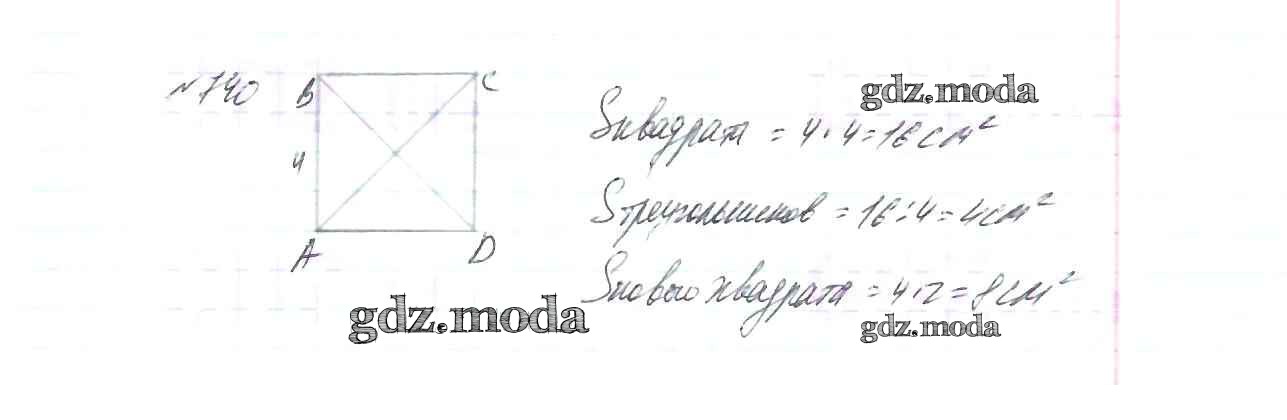 №740
B
C
4
A
D
Sквадрата = 4 · 4 = 16 см²
Sтреугольников = 16 : 4 = 4 см²
Sнового квадрата = 4 · 2 = 8 см²
gdz.moda
gdz.moda
gdz.moda